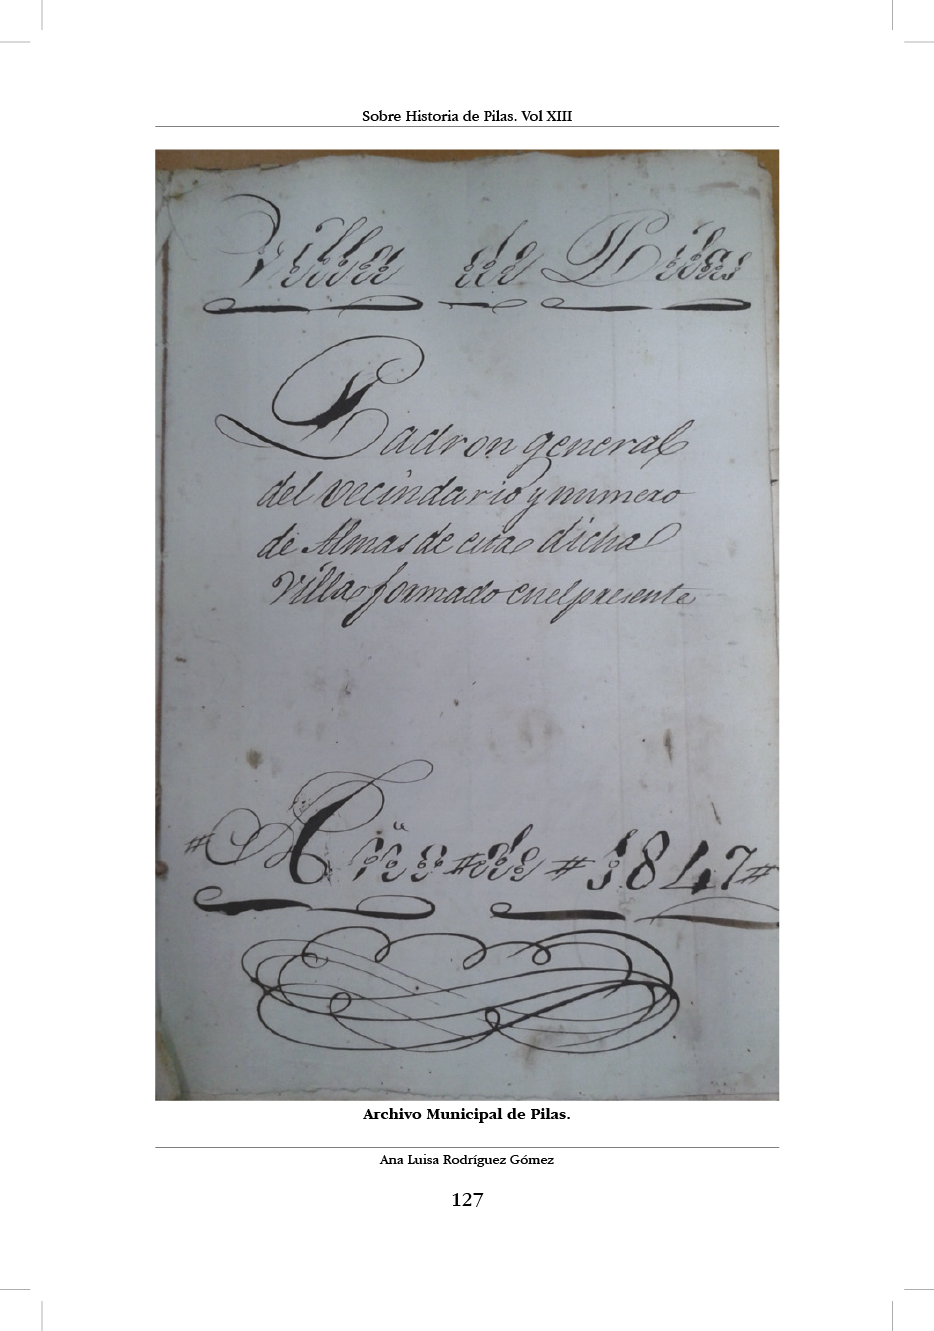 Sobre Historia de Pilas. Vol XIII
Villa de Pilas
Padron general
del vecindario y numero
de Almas de esta dicha
Villa formado en el presente
# Año # de # 1847 #
Archivo Municipal de Pilas.
Ana Luisa Rodríguez Gómez
127